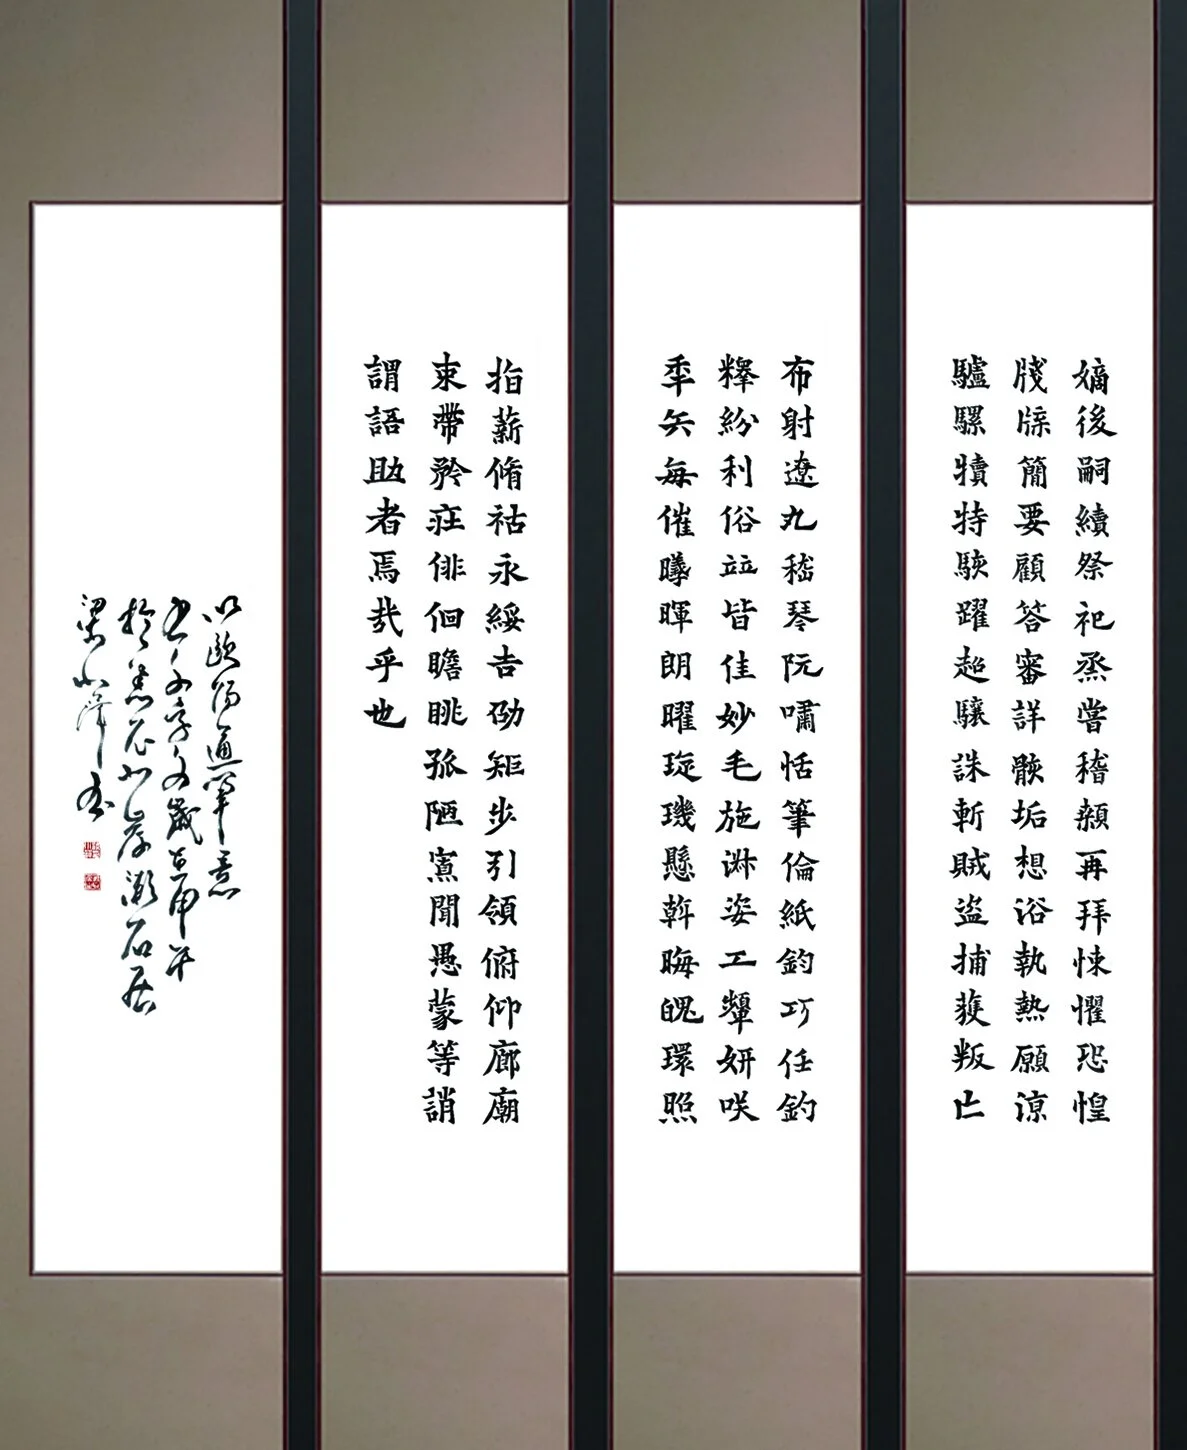 嫡後嗣續祭祀烝嘗稽顙再拜悚懼恐惶
牋牒簡要顧答審詳骸垢想浴執熱願涼
驢騾犢特駭躍超驤誅斬賊盜捕獲叛亡
布射遼丸嵇琴阮嘯恬筆倫紙鈞巧任釣
釋紛利俗竝皆佳妙毛施淑姿工顰妍咲
年矢每催曦暉朗曜琁璣懸斡晦魄環照
指薪脩祜永綏吉劭矩步引領俯仰廊廟
束帶矜莊俳佪瞻眺孤陋寡聞愚蒙等誚
謂語助者焉哉乎也
以歐陽通筆意
書千字文歲在甲午
於悉尼北岸漱石居
梁小萍書